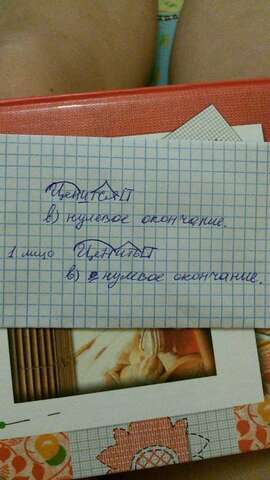 Ценится
в) нулевое окончание.
1 лицо Ценить
в) с нулевое окончание.